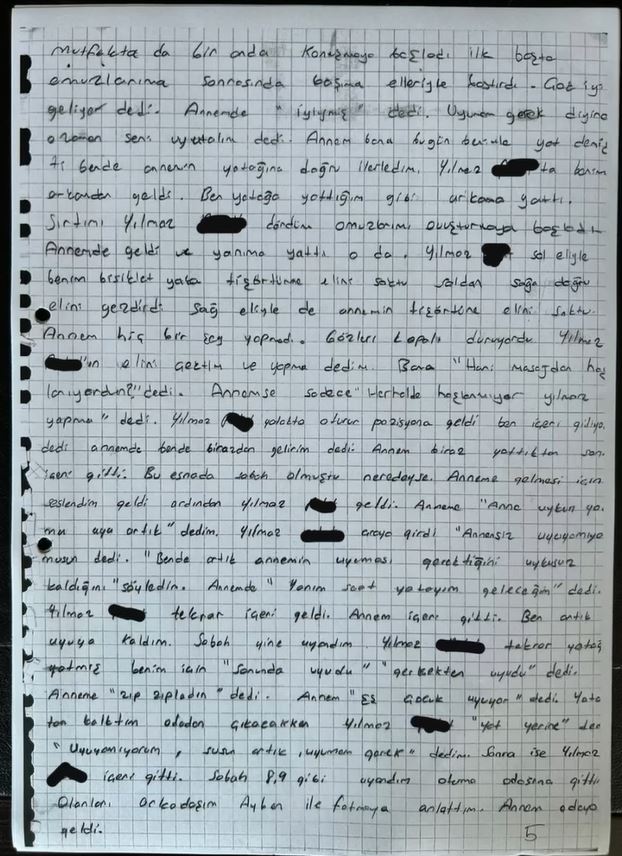 Mutfakta da bir anda konuşmaya başladı ilk başta
omuzlarıma sonrasında başıma elleriyle bastırdı. Çok iyi
geliyor dedi. Annemde "iyiymiş" dedi. Uyumam gerek diyince
o zaman seni uyutalım dedi. Annem bana bugün benimle yat demiş
ti bende annemin yatağına doğru ilerledim. Yılmaz ta benim
arkamdan geldi. Ben yatağa yattığım gibi arkama yattı.
Sırtımı Yılmaz döndüm omuzlarımı ovuşturmaya başladı
Annemde geldi ve yanıma yattı o da. Yılmaz sol eliyle
benim bisiklet yaka tişörtüme elini soktu soldan sağa doğru
elini gezdirdi sağ eliyle de annemin tişörtüne elini soktu.
Annem hiç bir şey yapmadı. Gözleri kapalı duruyordu Yılmaz
'ın elini çektim ve yapma dedim. Bana "Hani masajdan hoş
lanıyordun?" dedi. Annemse sadece "Herhalde hoşlanmıyor yılmaz
yapma" dedi. Yılmaz yatakta oturur pozisyona geldi ben içeri gidiyo.
dedi annemde bende birazdan gelirim dedi. Annem biraz yattıktan son.
içeri gitti. Bu esnada sabah olmuştu neredeyse. Anneme gelmesi için
seslendim geldi ardından Yılmaz geldi. Anneme "Anne uykun yo.
mu uyu artık" dedim. Yılmaz araya girdi "Annensiz uyuyamıyo
musun dedi. "Bende artık annemin uyuması gerektiğini uykusuz
kaldığını" söyledim. Annemde "Yarım saat yatayım geleceğim" dedi.
Yılmaz tekrar içeri geldi. Annem içeri gitti. Ben artık
uyuya kaldım. Sabah yine uyandım. Yılmaz tekrar yatağ
yatmış benim için "Sonunda uyudu" "gerçekten uyudu" dedi.
Anneme "zıp zıpladın" dedi. Annem "şş çocuk uyuyor" dedi. Yata
tan kalktım odadan çıkacakken Yılmaz "Yat yerine" ded
"Uyuyamıyorum, susun artık, uyumam gerek" dedim. Sonra ise Yılmaz
içeri gitti. Sabah 8,9 gibi uyandım oturma odasına gitti.
Olanları arkadaşım Ayben ile fatmaya anlattım. Annem odaya
geldi.
5